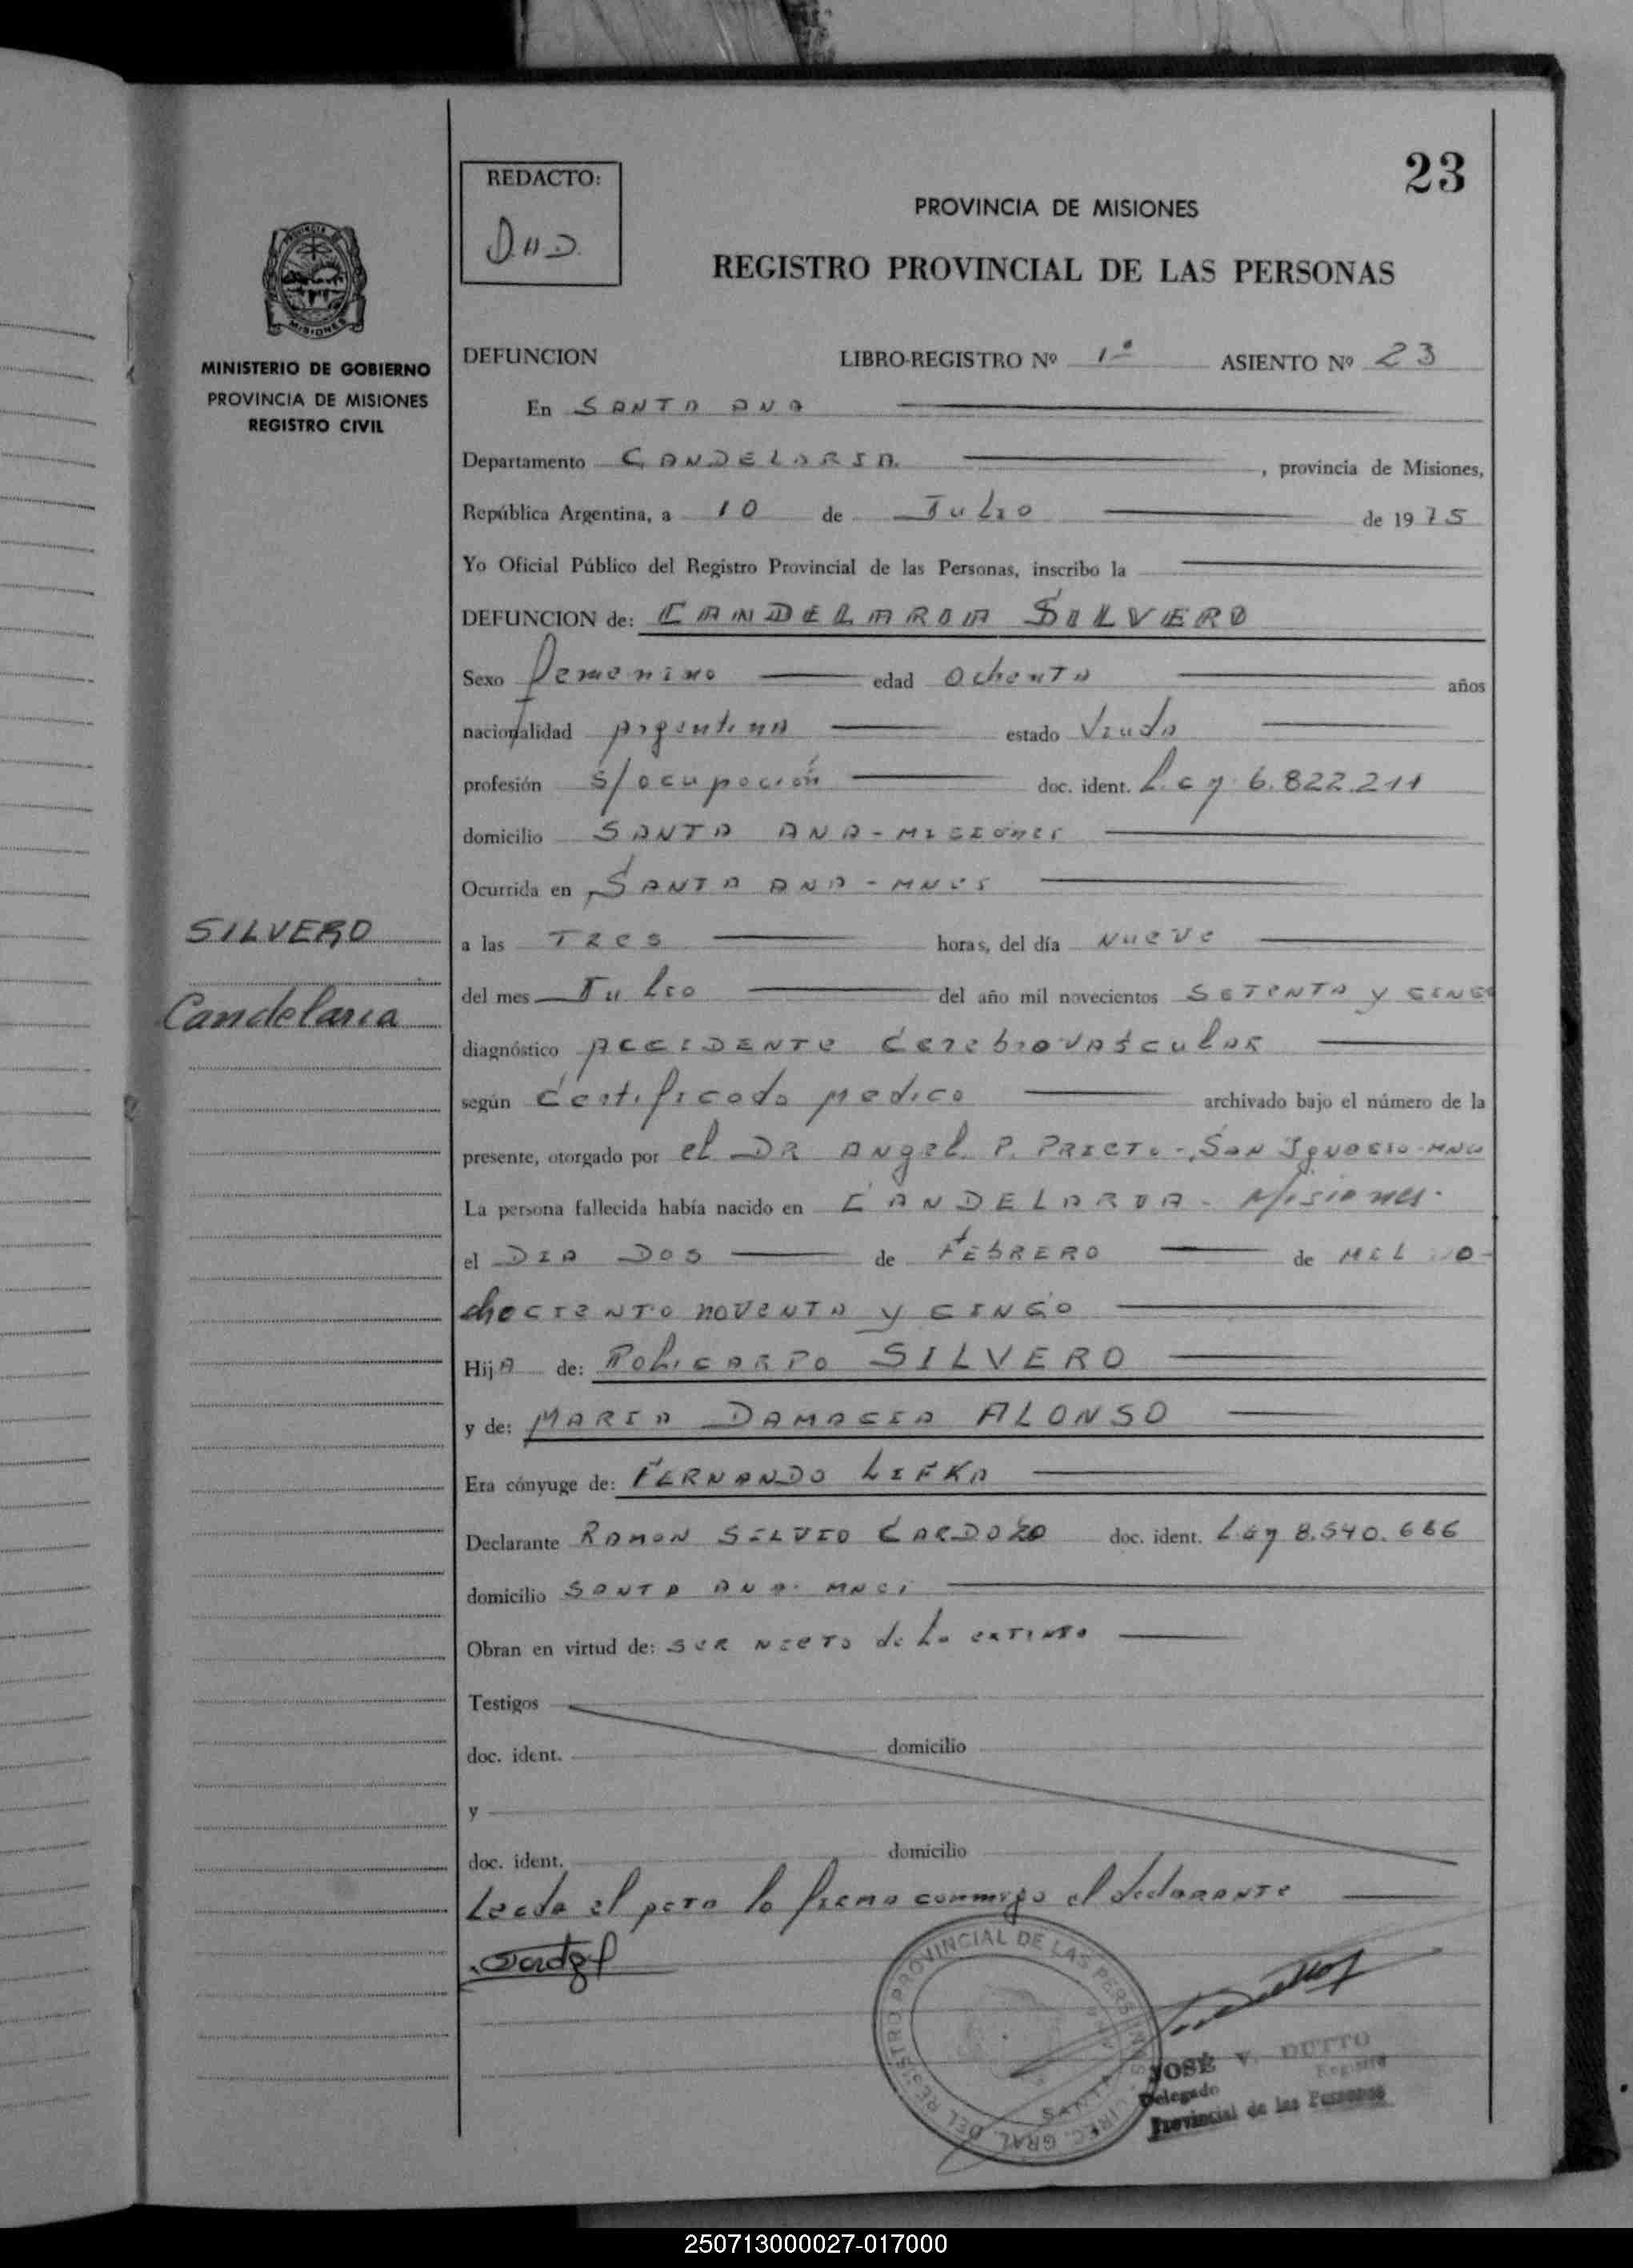 23
REDACTO:
PROVINCIA DE MISIONES
REGISTRO PROVINCIAL DE LAS PERSONAS
MINISTERIO DE GOBIERNO
PROVINCIA DE MISIONES
REGISTRO CIVIL
DEFUNCION LIBRO-REGISTRO Nº 1º ASIENTO Nº 23
En SANTA ANA
Departamento CANDELARIA , provincia de Misiones,
República Argentina, a 10 de Julio de 1975
Yo Oficial Público del Registro Provincial de las Personas, inscribo la
DEFUNCION de: CANDELARIA SILVERO
Sexo femenino edad Ochenta años
nacionalidad Argentina estado Viuda
profesión s/ocupación doc. ident. L.C. Nº 6.822.211
domicilio SANTA ANA-Misiones
Ocurrida en SANTA ANA-MNES
SILVERO
Candelaria
a las Tres horas, del día Nueve
del mes Julio del año mil novecientos SETENTA y CINCO
diagnóstico ACCIDENTE Cerebrovascular
según Certificado Medico archivado bajo el número de la
presente, otorgado por el DR ANgel P. PRIETO-SAN IgNACIO-MNES
La persona fallecida había nacido en CANDELARIA - Misiones.
el DIA DOS de FEBRERO de MIL O-
choCIENTO NOVENTA y CINCO
HijA de: POLICARPO SILVERO
y de: MARIA DAMACIA ALONSO
Era cónyuge de: FERNANDO LIFKA
Declarante RAMON SILVIO CARDOZO doc. ident. 8.540.666
domicilio SANTA ANA-MNES
Obran en virtud de: SER NIETO de La extinta
Testigos
doc. ident. domicilio
y
doc. ident. domicilio
Leida el acta la firma conmigo el declarante
PROVINCIAL DE LAS PERSONAS
DIREC. GRAL. DEL REGISTRO
JOSÉ V. DUTTO
Delegado Registro
Provincial de las Personas
250713000027-017000